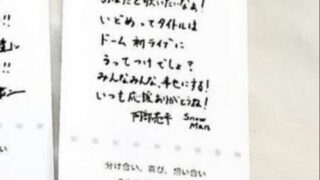 あなたと歌いたいなぁ!
いどめってタイトルは
ドーム初ライブに
うってつけでしょ?
みんなみんな、幸せにする!
いつも応援ありがとうね!
阿部亮平 Snow Man
!!
!!
分け合い、喜び、想い合い